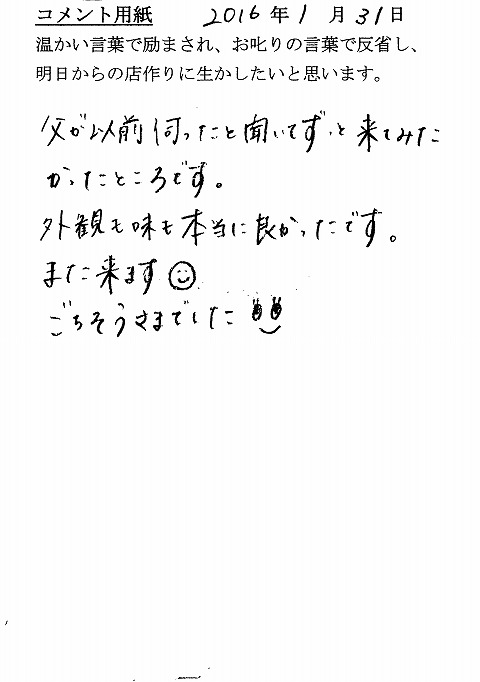 コメント用紙 2016年1月31日
温かい言葉で励まされ、お叱りの言葉で反省し、
明日からの店作りに生かしたいと思います。
父が以前伺ったと聞いてずっと来てみた
かったところです。
外観も味も本当に良かったです。
また来ます
ごちそうさまでした